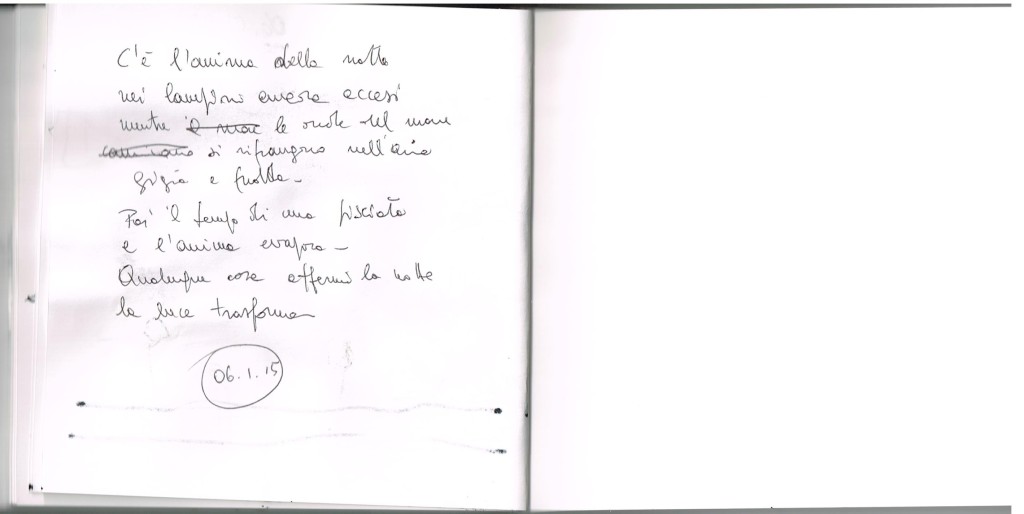 C'è l'anima della notte
nei lampioni ancora accesi
mentre il mare le onde del mare
si rifrangono nell'aria
grigia e fredda -
Poi il tempo di una pisciata
e l'anima evapora -
Qualunque cosa affermi la notte
la luce trasforma
06.1.15